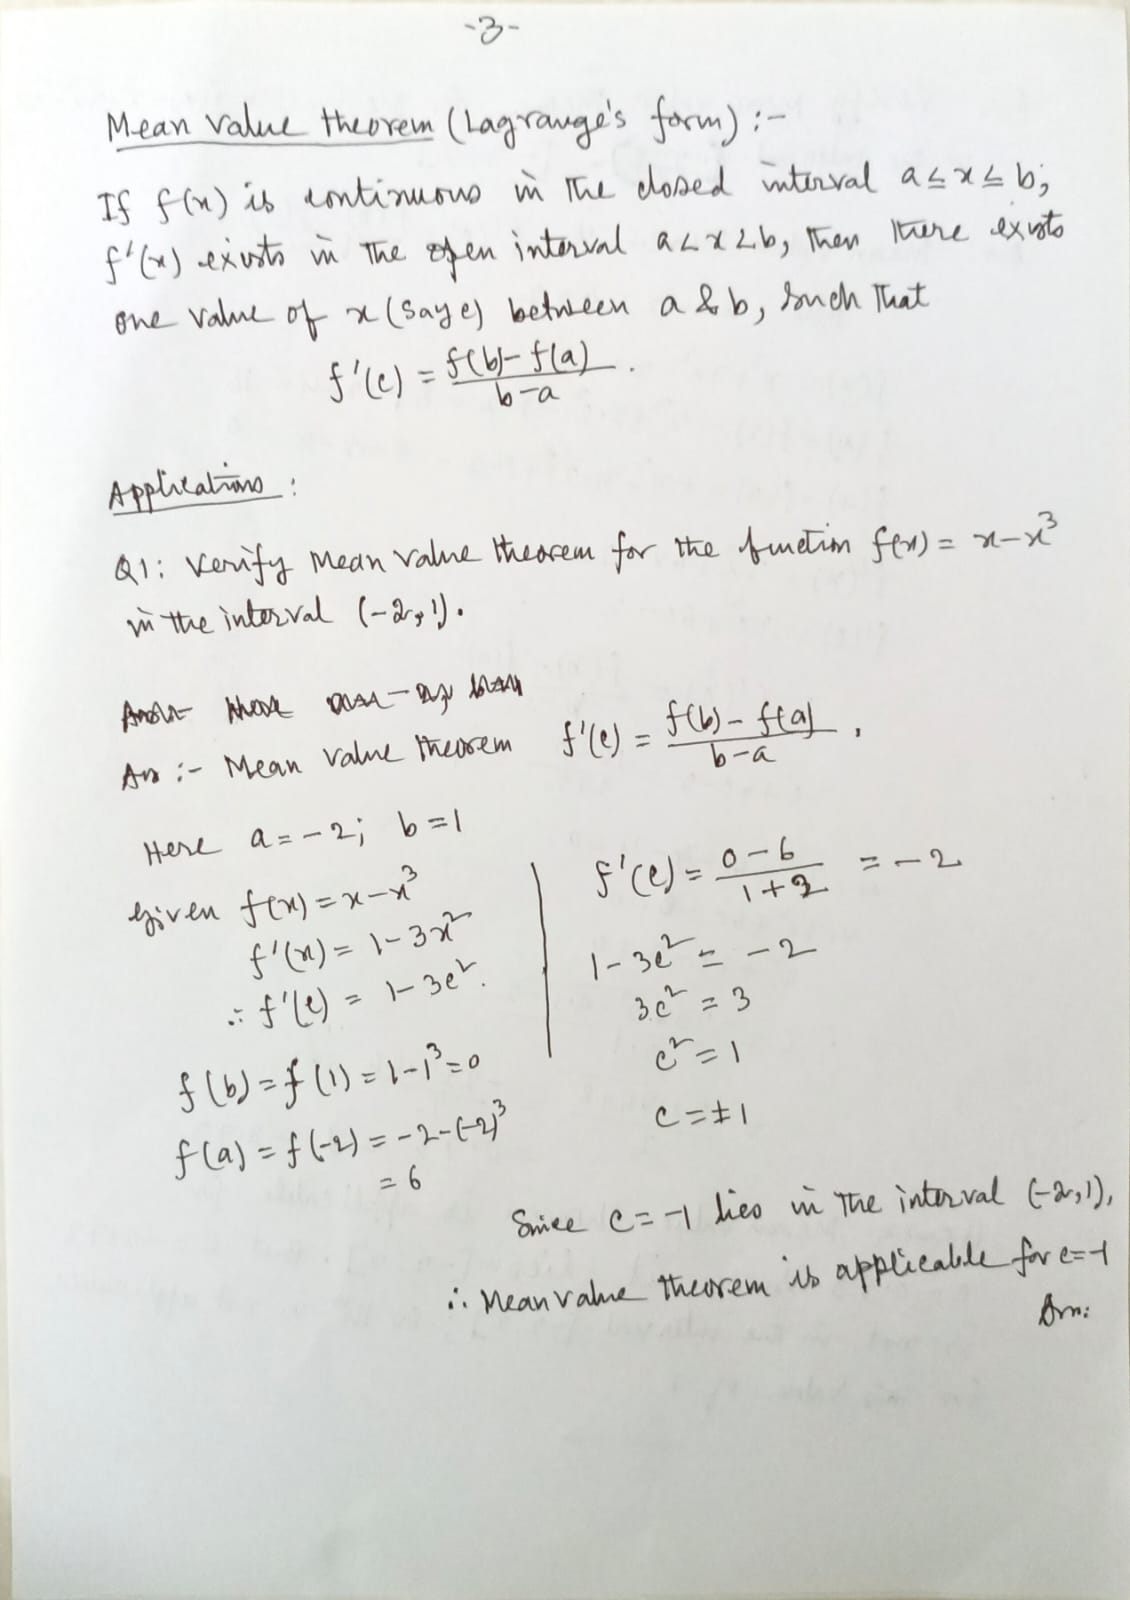 -3-
Mean Value theorem (Lagrange's form) :-
If f(x) is continuous in the closed interval a≤x≤b;
f'(x) exists in the open interval a<x<b, then there exists
one value of x (say c) between a & b, such that
f'(c) = f(b)-f(a) / b-a .
Applications :
Q1: Verify Mean Value theorem for the function f(x) = x-x³
in the interval (-2,1).
An :- Mean Value theorem f'(c) = f(b)-f(a) / b-a ,
Here a=-2; b=1
Given f(x) = x-x³
f'(x) = 1-3x²
∴ f'(c) = 1-3c².
f(b) = f(1) = 1-1³=0
f(a) = f(-2) = -2-(-2)³
= 6
f'(c) = 0-6 / 1+2 = -2
1-3c² = -2
3c² = 3
c² = 1
c = ±1
Since c=-1 lies in the interval (-2,1),
∴ Mean value theorem is applicable for c=-1
Ans: